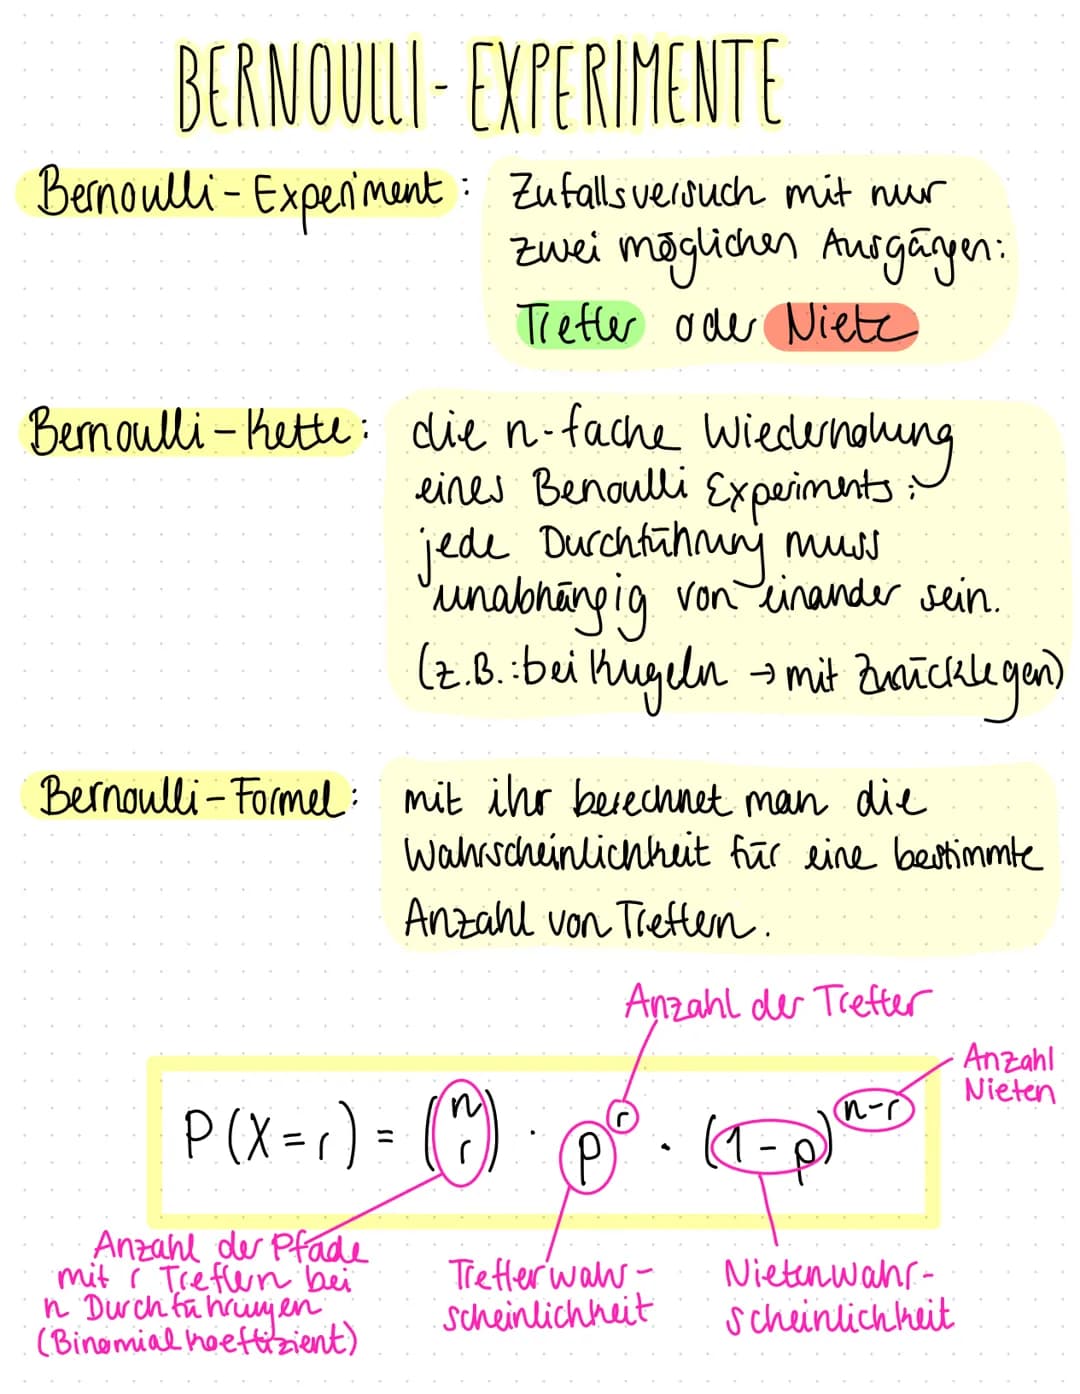 BERNOULLI-EXPERIMENTE
Bernoulli-Experiment: Zufallsversuch mit nur
zwei möglichen Ausgängen:
Treffer oder Niete
Bernoulli-Kette: die n-fache Wiederholung
eines Benoulli Experiments:
jede Durchführung muss
unabhängig von einander sein.
(z.B.: bei Kugeln → mit Zurücklegen)
Bernoulli-Formel: mit ihr berechnet man die
Wahrscheinlichkeit für eine bestimmte
Anzahl von Treffern.
Anzahl der Treffer
Anzahl
Nieten
P(X=r) = (n r) · p^r · (1-p)^(n-r)
Anzahl der Pfade
mit r Treffern bei
n Durchführungen
(Binomialkoeffizient)
Trefferwahr-
scheinlichkeit
Nietenwahr-
scheinlichkeit